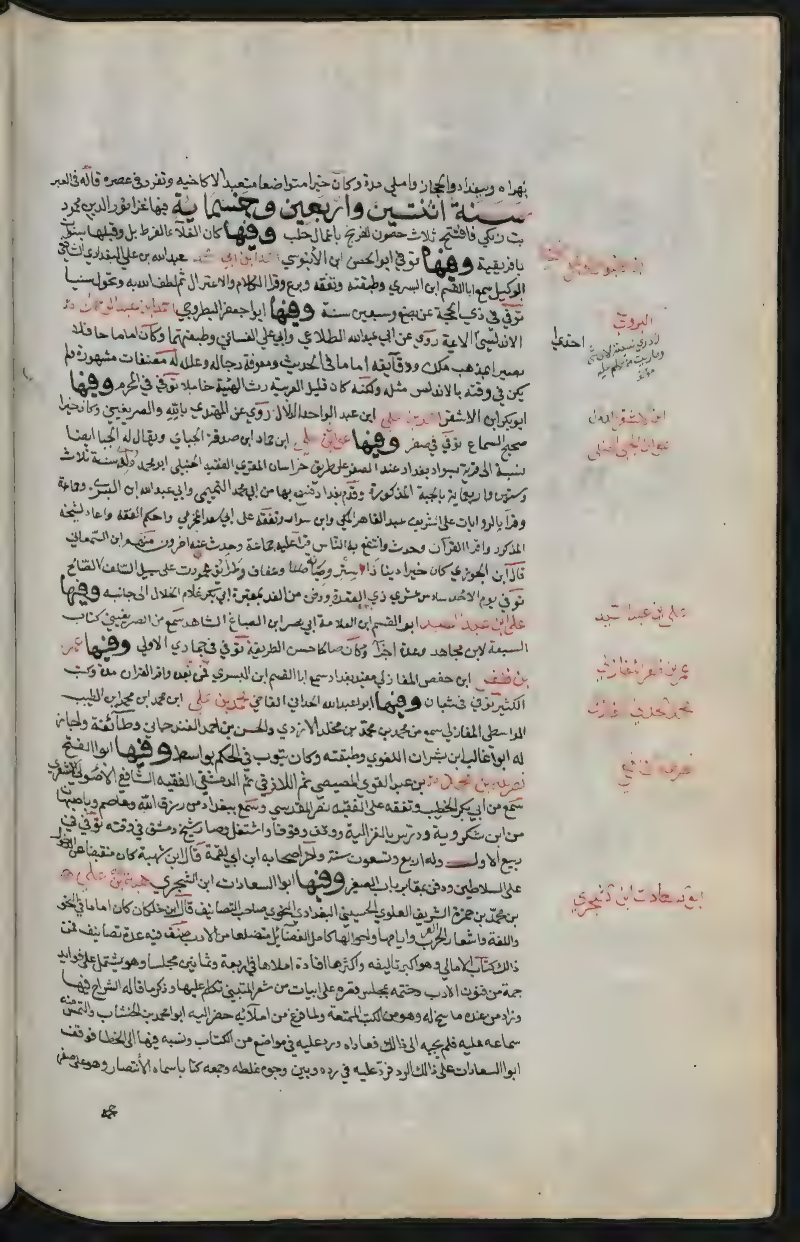 بهراه وببغداد والحجاز واملى مدة وكان خيرا متواضعا متعبدا لاكاخيه وتفرد في عصره قاله في العبر
سنة اثنتين واربعين وخمسماية فيها غزا نور الدين محمود
بن زنكي فافتتح ثلاث حصون للفرنج باعمال حلب وفيها كان الغلاء المفرط بل وقبلها بسنين
بافريقية وفيها توفي ابو الحسن ابن الآبنوسي عبد الله بن علي البغدادي الشافعي
الوكيل سمع ابا القسم ابن البسري وطبقته وتفقه وبرع وقرا الكلام والاعتزال ثم لطف الله به وتحول سنيا
توفي في ذي الحجة عن بضع وسبعين سنة وفيها ابو جعفر البطروجي احمد بن عبد الرحمن
الاندلسي الاعية روى عن ابي عبد الله الطلاعي وابي علي الغساني وطبقتهما وكان اماما حافلا
بصيرا بمذهب ملك ودقايقه اماما في الحديث ومعرفة رجاله وعلله له مصنفات مشهورة ولم
يكن في وقته بالاندلس مثله ولكنه كان قليل العربية رث الهيئة خاملا توفي في المحرم وفيها
ابو بكر ابن الاشقر احمد بن علي ابن عبد الواحد الدلال روى عن المهتدي بالله والصريفيني وكان خيرا
صحيح السماع توفي في صفر وفيها عوان بن علي ابن حماد ابن صدقة الجباي ويقال له الجبا ايضا
نسبة الى قرية بسواد بغداد عند العقر على طريق خراسان المقري الفقيه الحنبلي ابو محمد ولد سنة ثلاث
وستين واربعماية بالجبة المذكورة وقدم بغداد فسمع بها من ابي محمد التميمي وابي عبد الله ابن البسري وجماعة
وقرا بالروايات على الشريف عبد القاهر المكي وابن سوار وتفقه على ابي سعد المخرمي واحكم الفقه واعاد لشيخه
المذكور واقرا القرآن وحدث وانتفع به الناس قرا عليه جماعة وحدث عنه اخرون منهم ابن السمعاني
قال ابن الجوزي كان خيرا دينا ذا ستر وصيانة وعفاف وطرايق محمودة على سبيل السلف الصالح
توفي يوم الاحد سادس عشري ذي القعدة ودفن من الغد بمقبرة ابي بكر غلام الخلال الى جانبه وفيها
علي بن عبد السيد ابو القسم ابن العلامة ابي نصر ابن الصباغ الشاهد سمع من الصريفيني كتاب
السبعة لابن مجاهد وعدة اجزآ وكان صالحا حسن الطريقة توفي في جمادي الاولى وفيها عمر
بن ظفر ابن حفص المغازلي مفيد بغداد سمع ابا القسم ابن البسري فمن بعده واقرا القران مدة وكتب
الكثير توفي في شعبان وفيها ابو عبد الله الجلابي القاضي محمد بن علي ابن محمد ابن محمد ابن الطيب
الواسطي المغازلي سمع من محمد بن محمد بن مخلد الازدي والحسن بن احمد الغندجاني وطائفة واجاز
له ابو غالب ابن بشران اللغوي وطبقته وكان ينوب في الحكم بواسط وفيها ابو الفتح
نصر الله بن محمد بن عبد القوي المصيصي ثم اللاذقي ثم الدمشقي الفقيه الشافعي الاصولي الاشعري
سمع من ابي بكر الخطيب وتفقه على الفقيه نصر المقدسي وسمع ببغداد من رزق الله وعاصم وباصبهان
من ابن شكرويه ودرس بالغزالية ووقف وقوفا واشتغل وصار شيخ دمشق في وقته توفي في
ربيع الاول وله اربع وتسعون سنة واخر اصحابه ابن ابي لقمة قال ابن شهبة كان منقبضا عن الدخول
على السلاطين ودفن بمقابر باب الصغير وفيها ابو السعادات ابن الشجري هبة الله بن علي
بن محمد بن حمزة الشريف العلوي الحسيني البغدادي النحوي صاحب التصانيف قال ابن خلكان كان اماما في النحو
واللغة واشعار العرب وايامها واحوالها كامل الفضائل متضلعا من الادب صنف فيه عدة تصانيف فمن
ذالك كتاب الامالي وهو اكبر تاليفه واكثرها افادة املاها في اربعة وثمانين مجلسا وهو يشتمل على فوايد
جمة من فنون الادب وختمه بمجلس قصره على ابيات من شعر المتنبي تكلم عليها وذكر ما قاله الشراح فيها
وزاد من عنده ما سنح له وهو من الكتب الممتعة ولما فرغ من املآئه حضر اليه ابو محمد بن الخشاب والتمس منه
سماعه عليه فلم يجبه الى ذالك فعاداه ورد عليه في مواضع من الكتاب ونسبه فيها الى الخطا فوقف
ابو السعادات على ذالك الرد فرد عليه في رده وبين وجوه غلطه وجمعه كتابا سماه الانتصار وهو على صغر
البروجي
ابن الاشقر الدلال
عوان الجبي الحنبلي
علي بن عبد السيد
عمر بن ظفر المغازلي
ابو السعادات ابن الشجري